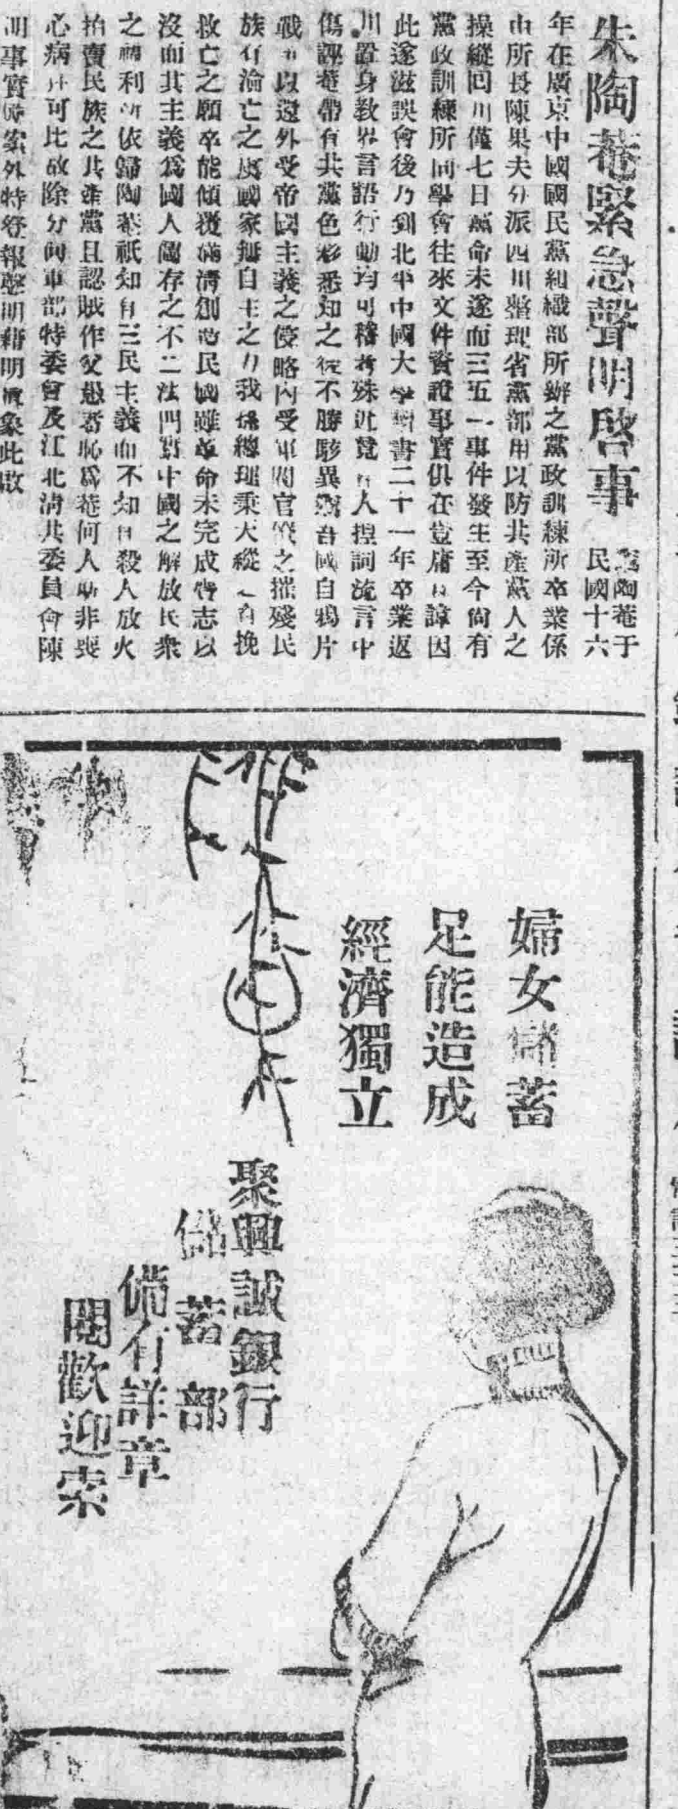 朱陶菴緊急聲明啓事
陶菴于
民國十六
年在廣京中國國民黨組織部所辦之黨政訓練所卒業係
由所長陳果夫分派四川整理省黨部用以防共產黨人之
操縱回川僅七日黨命未遂而三五一事件發生至今尙有
黨政訓練所同學會往來文件資證事實俱在豈庸諱因
此遂滋誤會後乃到北平中國大學書二十一年卒業返
川置身教界言語行動均可稽考殊近竟有人揑詞流言中
傷誣菴帶有共黨色彩悉知之後不勝駭異窃吾國自鴉片
戰爭以還外受帝國主義之侵略內受軍閥官僚之摧殘民
族有淪亡之虞國家無自主之力我係總理秉天縱之育挽
救亡之願卒能傾覆滿淸創造民國雖革命未完成齎志以
沒而其主義爲國人圖存之不二法門暨中國之解放民衆
之福利所依歸陶菴祇知有三民主義而不知有殺人放火
拍賣民族之共產黨且認賊作父愚者恥爲菴何人斯非喪
心病狂可比故除分向軍部特委會及江北淸共委員會陳
明事實備案外特登報聲明藉明眞象此啟
婦女儲蓄
足能造成
經濟獨立
聚興誠銀行
儲蓄部
備有詳章
閱歡迎索